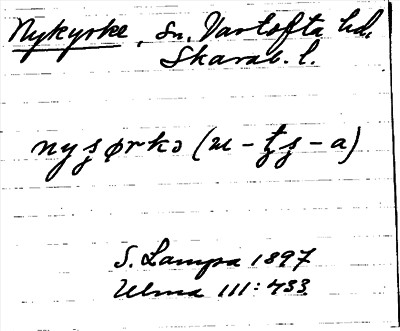 Nykyrke, sn. Vartofta hd,
Skarab. l.
nyʂørkə (u – tʂ – a)
S. Lampa 1897
Ulma 111:433